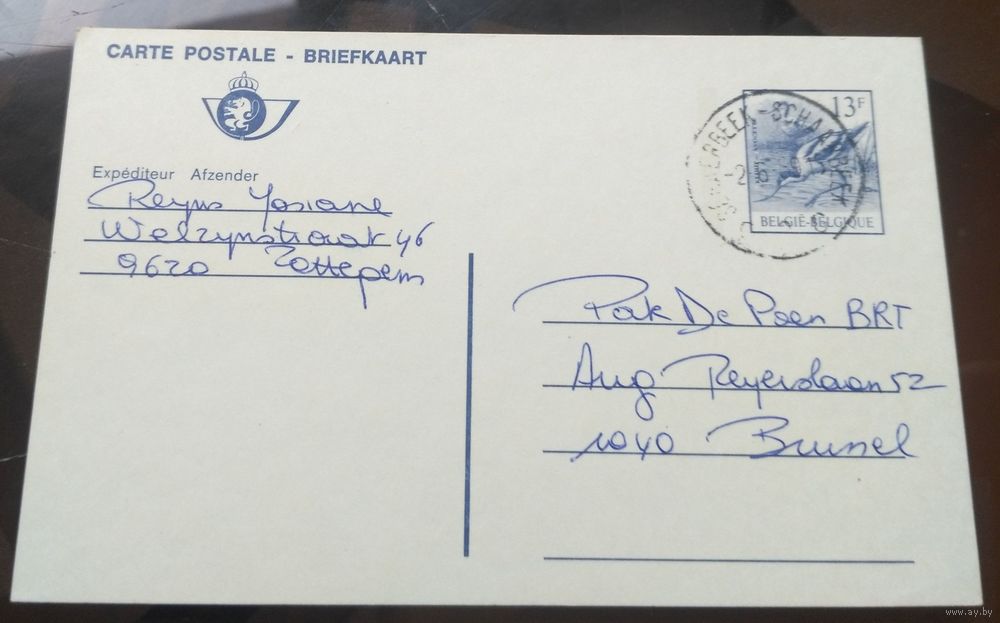 CARTE POSTALE - BRIEFKAART
Expéditeur Afzender
Reyns Josiane
Welzijnstraat 46
9620 Zottegem
13F
BELGIË-BELGIQUE
SCHAERBEEK-SCHAARBEEK
Pak De Poen BRT
Aug Reyerslaan 52
1040 Brussel
www.ay.by